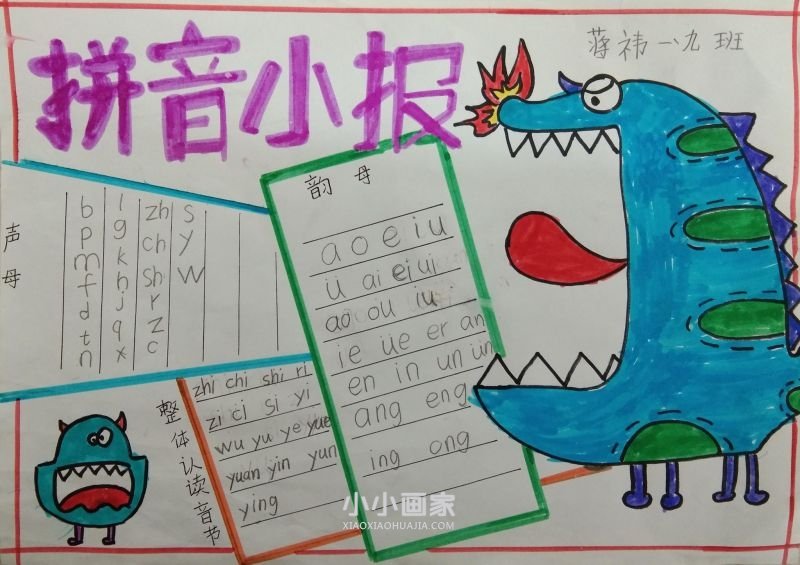 拼音小报
蒋祎 一、九 班
声母
b l zh s
p g ch y
m k sh w
f h r
d j z
t q c
n x
韵母
a o e i u
ü ai ei ui
ao ou iu
ie üe er an
en in un ün
ang eng
ing ong
整体认读音节
zhi chi shi ri
zi ci si yi
wu yu ye yue
yuan yin yun
ying
小小画家
XIAOXIAOHUAJIA.COM